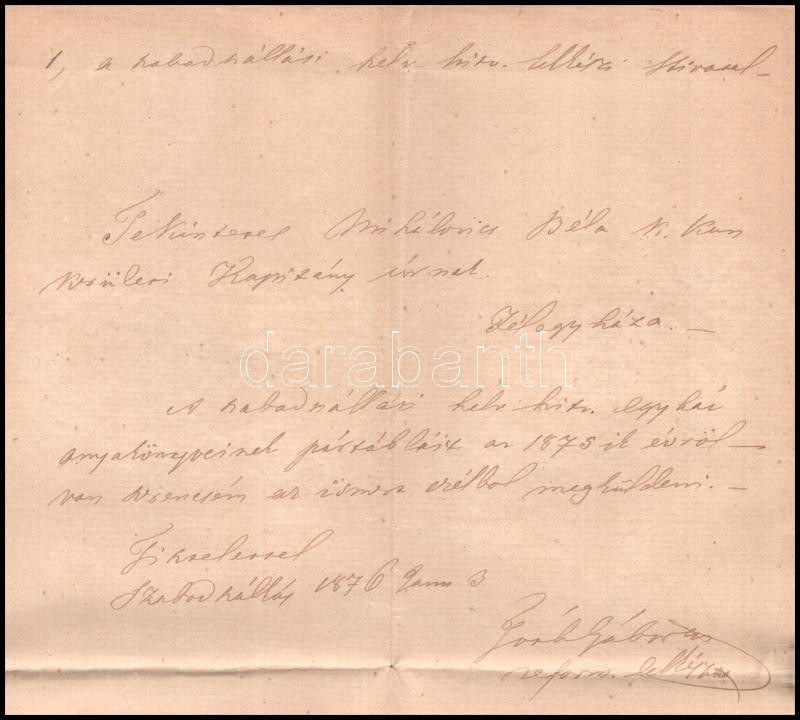 1, a szabadszállási helv. hitv. lelkészi hivatal –
Tekintetes Mihálovics Béla K. Kun
kerületi Kapitány úrnak.
Félegyháza. –
darabanth
A szabadszállási helv. hitv. egyház
anyakönyveinek pártábláit az 1875 ik évről –
van szerencsém az ismert czélból megküldeni. –
Tisztelettel
Szabadszállás 1876 Janu 3
Gábor
reform. lelkész